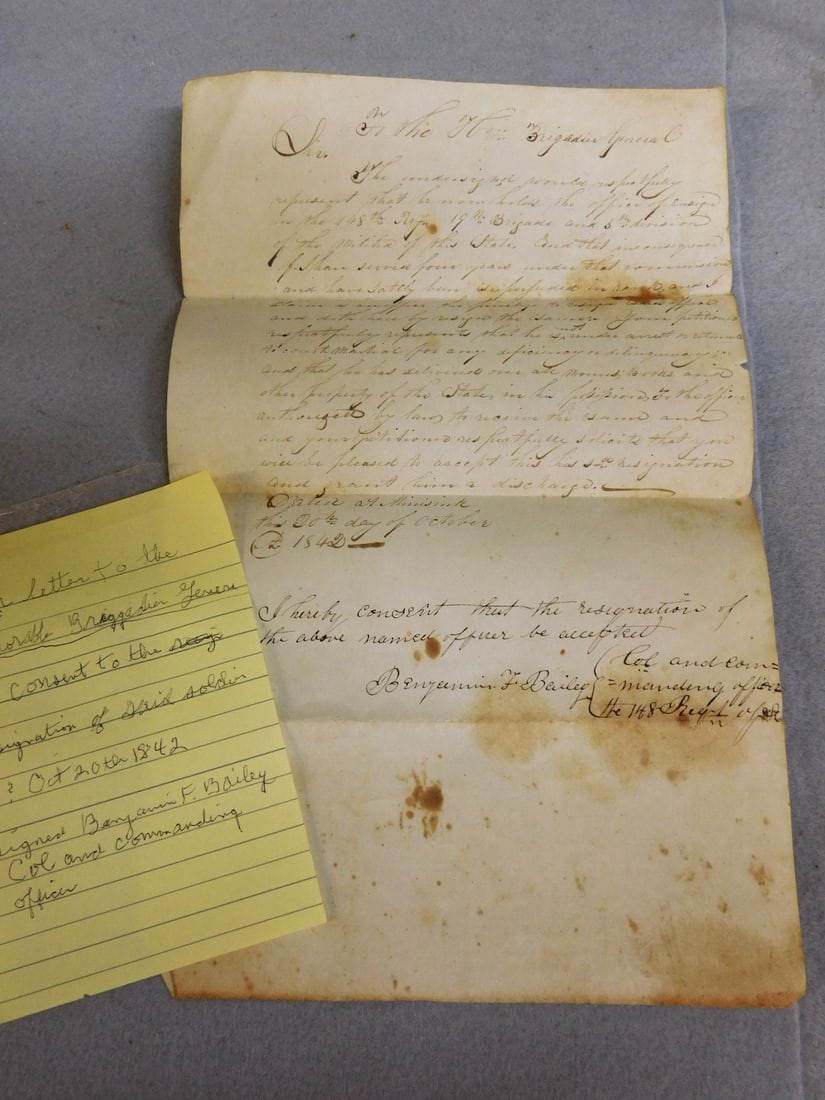 To the Hon. Brigadier General
Sir.
The undersigned would respectfully
represent that he now holds the office of Ensign
in the 148th Regt 19th Brigade and 5th division
of the Militia of this State. And that in consequence
of having served four years under that commission
and have lattly been superseded in rank and I
claim
and doth hereby resign the same. Your petitioner
respectfully represents that he is not under arrest or returned
to court martial for any deficiency or delinquency
and that he has delivered over all monies, books and
other property of the State, in his possession, to the officer
authorized by law to receive the same and
and your petitioner respectfully solicits that you
will be pleased to accept this his resignation
and grant him a discharge.
Dated at Minisink
this 20th day of October
1842
I hereby consent that the resignation of
the above named officer be accepted
Benjamin F Bailey
Col and com=
=manding officer
the 148 Regt of
letter to the
orable Briggadier Genere
Consent to the
signation of said soldier
? Oct 20th 1842
signed Benjamin F. Bailey
Col and commanding
officer